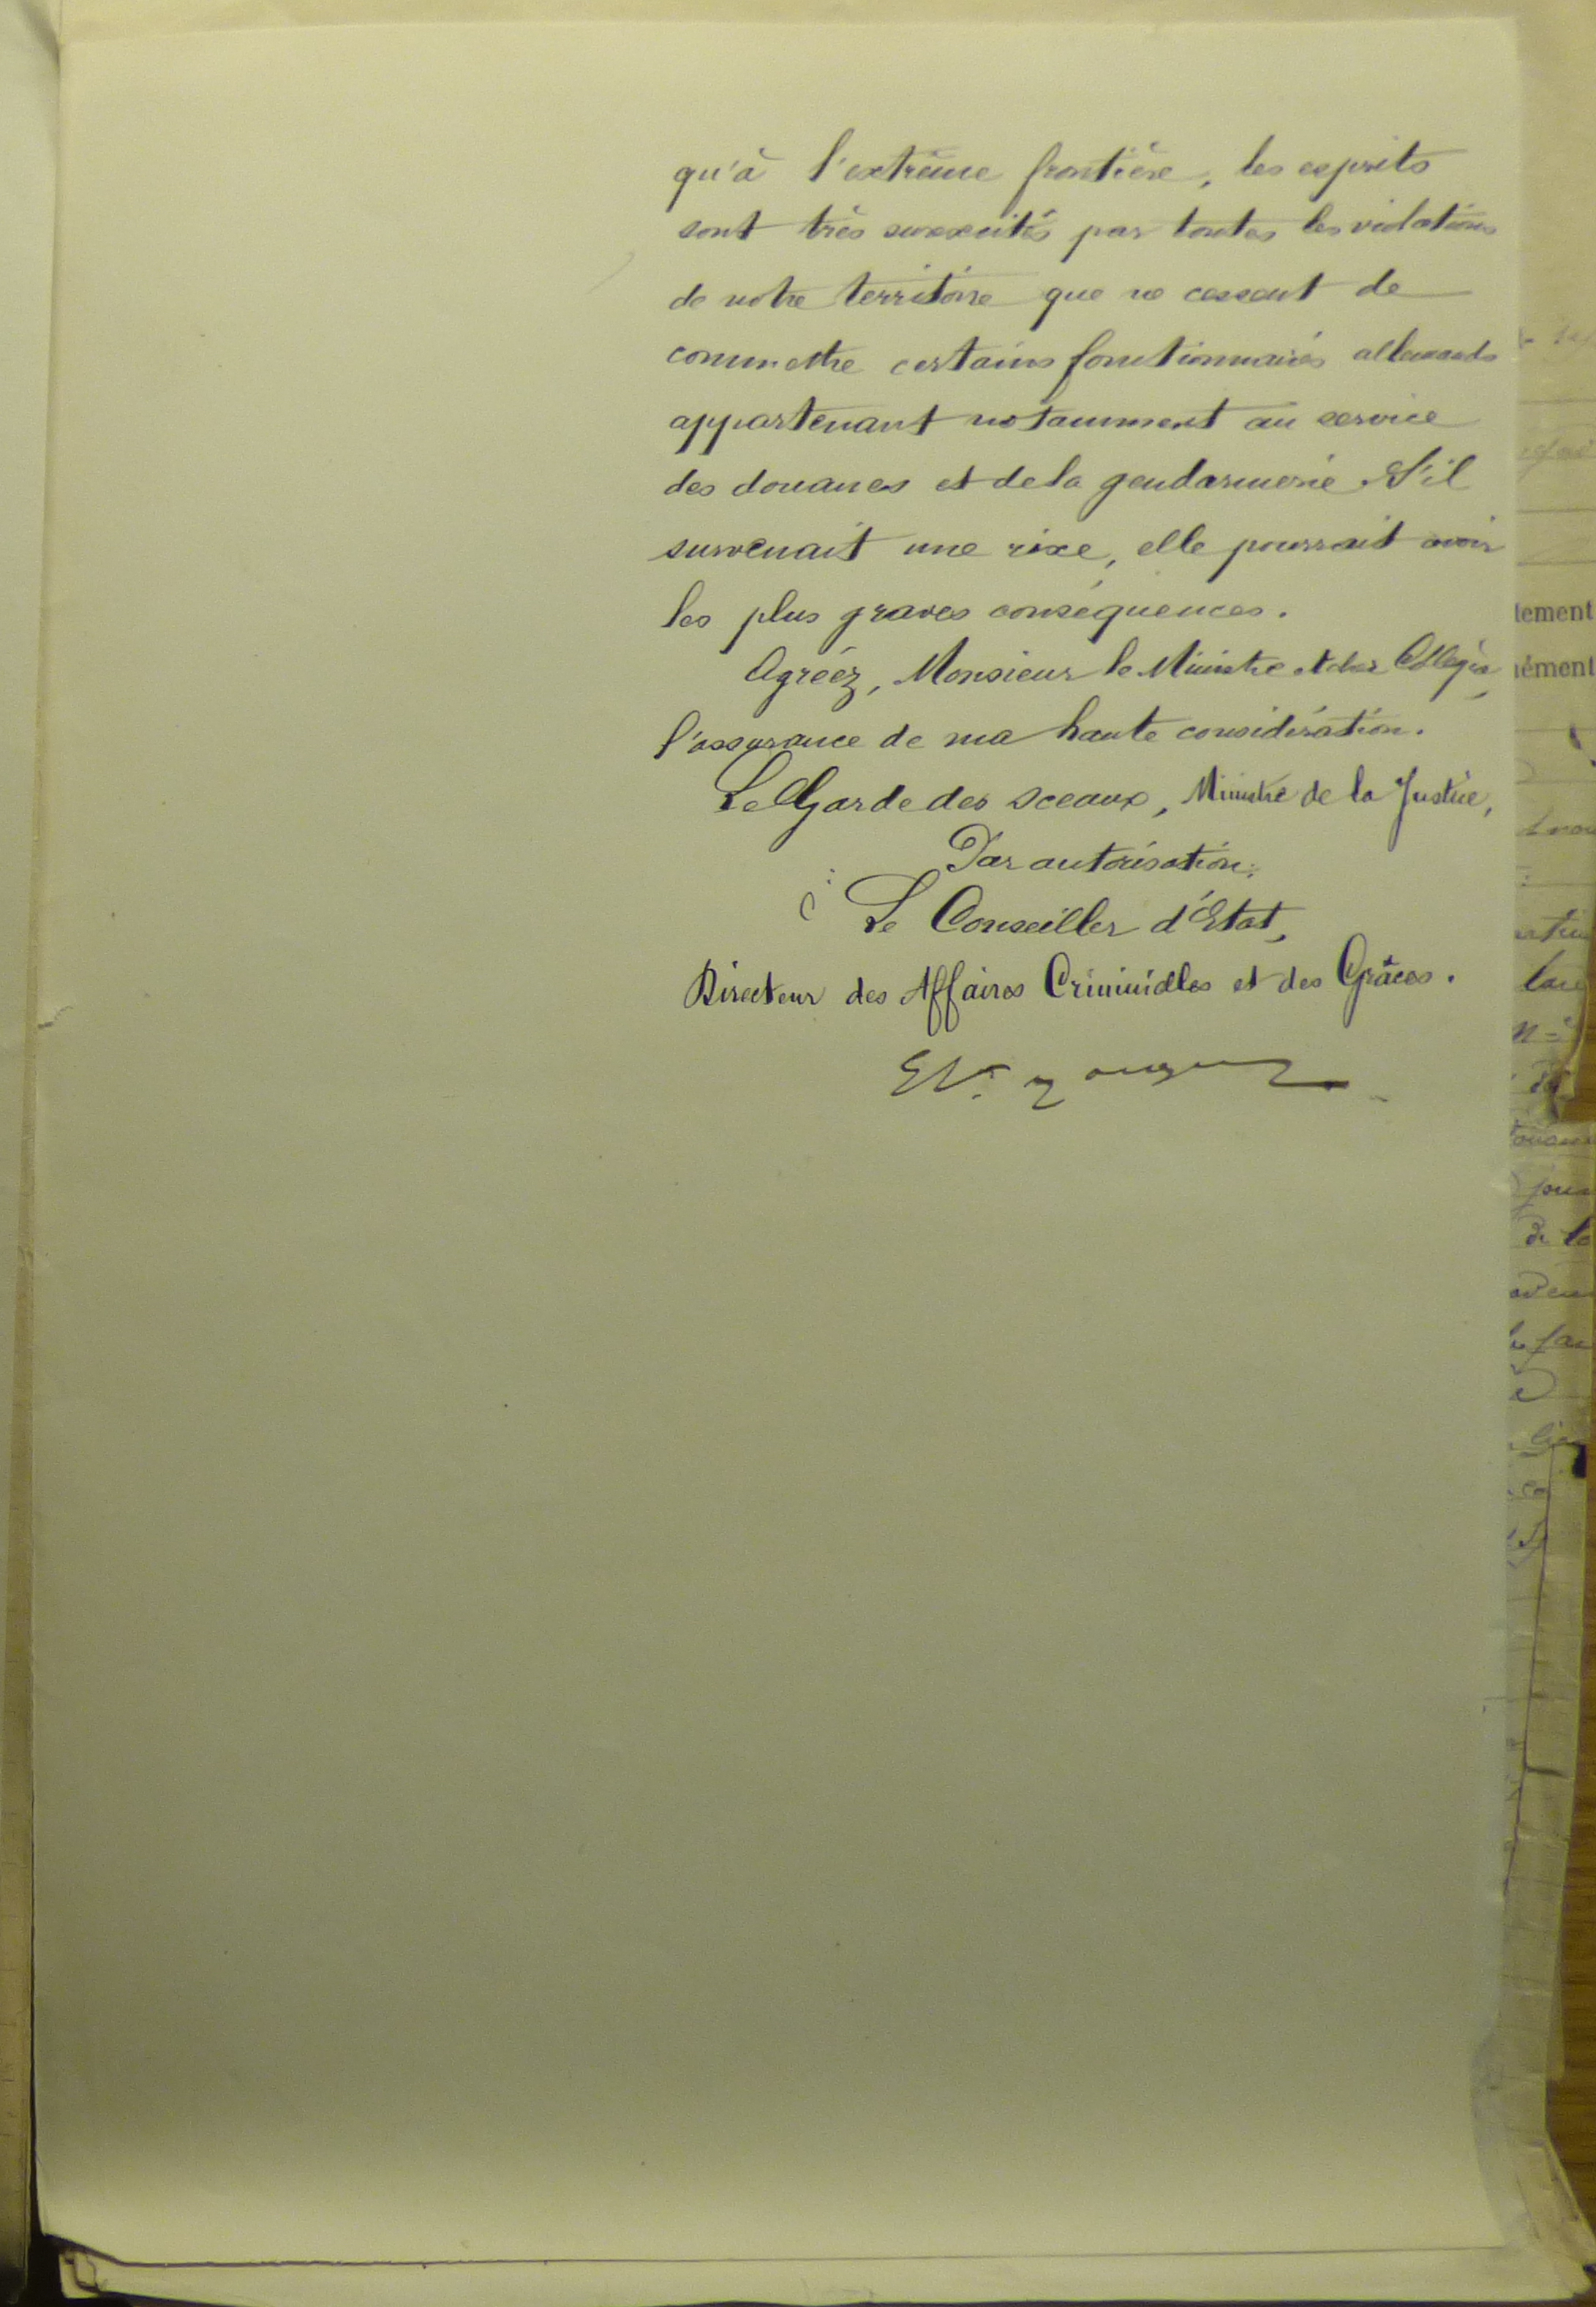 qu'à l'extrême frontière, les esprits
sont très surexcités par toutes les violations
de notre territoire que ne cessent de
commettre certains fonctionnaires allemands
appartenant notamment au service
des douanes et de la gendarmerie. S'il
survenait une rixe, elle pourrait avoir
les plus graves conséquences.
Agréez, Monsieur le Ministre et cher Collègue,
l'assurance de ma haute considération.
Le Garde des sceaux, Ministre de la Justice,
Par autorisation:
Le Conseiller d'Etat,
Directeur des Affaires Criminelles et des Grâces.